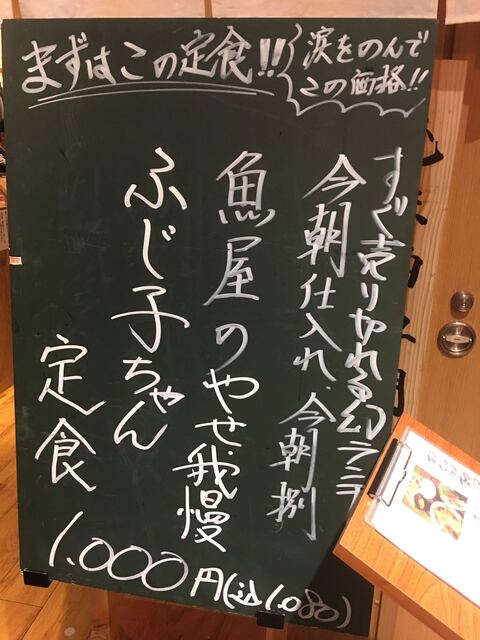 まずはこの定食!!
涙をのんで
この価格!!
すぐ売り切れる幻ランチ
今朝仕入れ、今朝捌
魚屋のやせ我慢
ふじ子ちゃん
定食
1.000円(込1.080)